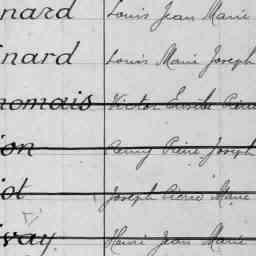 nard Louis Jean Marie
inard Louis Marie Joseph
homais Victor Emile Pierre
ion Remy Pierre Joseph
iot Joseph Pierre Marie
vay Henri Jean Marie